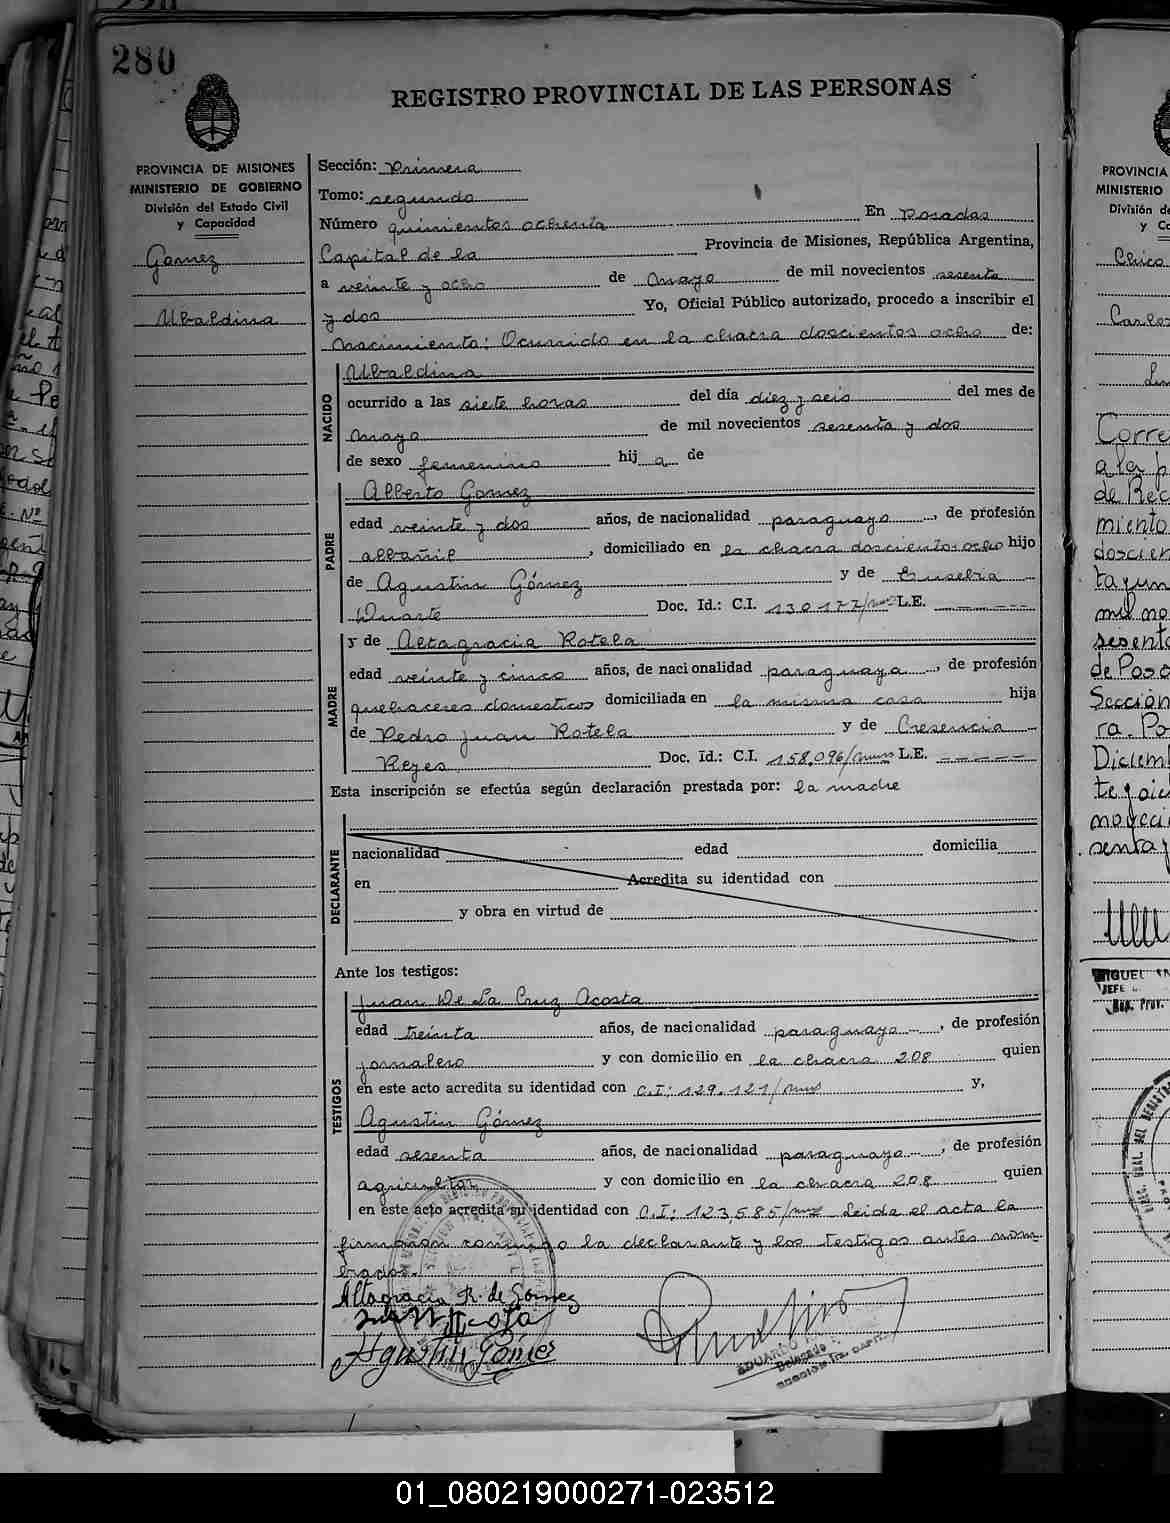 280
REGISTRO PROVINCIAL DE LAS PERSONAS
PROVINCIA DE MISIONES
MINISTERIO DE GOBIERNO
División del Estado Civil
y Capacidad
Gomez
Ubaldina
Sección: Primera
Tomo: segundo
Número quinientos ochenta En Posadas
Capital de la Provincia de Misiones, República Argentina,
a veinte y ocho de Mayo de mil novecientos sesenta
y dos Yo, Oficial Público autorizado, procedo a inscribir el
Nacimiento: Ocurrido en la chacra doscientos ocho de:
NACIDO
Ubaldina
ocurrido a las siete horas del día diez y seis del mes de
Mayo de mil novecientos sesenta y dos
de sexo femenino hij a de
PADRE
Alberto Gomez
edad veinte y dos años, de nacionalidad paraguayo, de profesión
albañil, domiciliado en la chacra doscientos ocho hijo
de Agustin Gómez y de Eusebia
Duarte Doc. Id.: C.I. 130177/ L.E. ------
MADRE
y de Altagracia Rotela
edad veinte y cinco años, de nacionalidad paraguaya, de profesión
quehaceres domesticos domiciliada en la misma casa hija
de Pedro Juan Rotela y de Cresencia
Reyes Doc. Id.: C.I. 158.096/ L.E. ------
Esta inscripción se efectúa según declaración prestada por: la madre
DECLARANTE
nacionalidad edad domicilia
en Acredita su identidad con
y obra en virtud de
Ante los testigos:
TESTIGOS
Juan De La Cruz Acosta
edad treinta años, de nacionalidad paraguayo, de profesión
jornalero y con domicilio en la chacra 208 quien
en este acto acredita su identidad con C.I: 129.121/ y,
Agustin Gómez
edad sesenta años, de nacionalidad paraguayo, de profesión
agricultor y con domicilio en la chacra 208 quien
en este acto acredita su identidad con C.I: 123,585/ Leida el acta la
firmaron conmigo la declarante y los testigos antes nom-
brados.
Altagracia R. de Gómez
Acosta
Agustin Gómez
EDUARDO
Delegado
PROVINCIA
MINISTERIO
División de
y Ca
Chico
Carlos
Corre
a ley p
de Rec
miento
doscien
ta y un
mil no
sesenta
de Posa
Sección
ra. Po
Diciem
te y oic
novecie
senta y
MIGUEL
JEFE
01_080219000271-023512